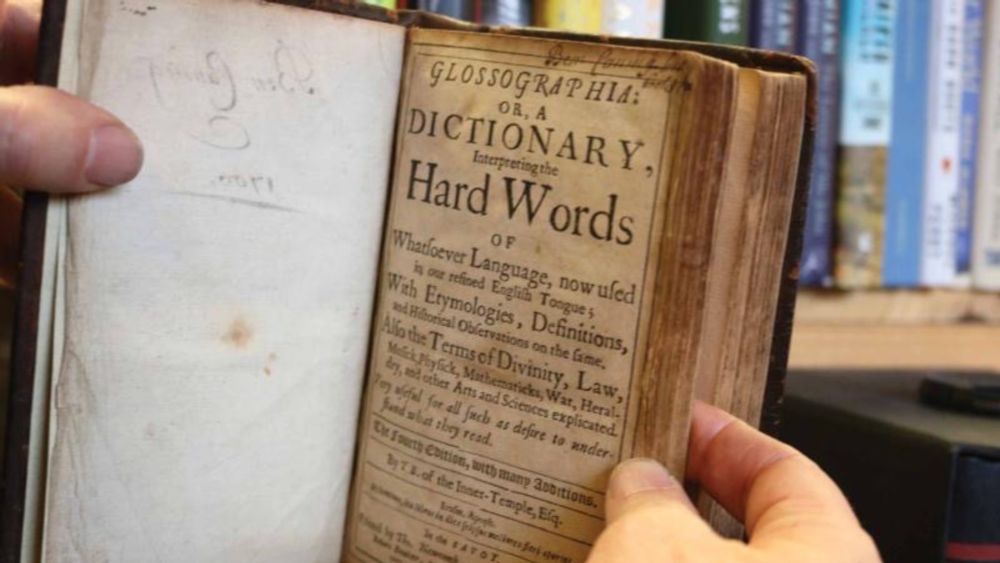 GLOSSOGRAPHIA:
OR, A
DICTIONARY,
Interpreting the
Hard Words
OF
Whatſoever Language, now uſed
in our refined Engliſh Tongue;
With Etymologies, Definitions,
and Hiſtorical Obſervations on the ſame.
Alſo the Terms of Divinity, Law,
Muſick, Phyſick, Mathematicks, War, Heral-
dry, and other Arts and Sciences explicated.
Very uſeful for all ſuch as deſire to under-
ſtand what they read.
The Fourth Edition, with many Additions.
By T. B. of the Inner-Temple, Eſq.
In the SAVOY,
Printed by Tho. Newcomb